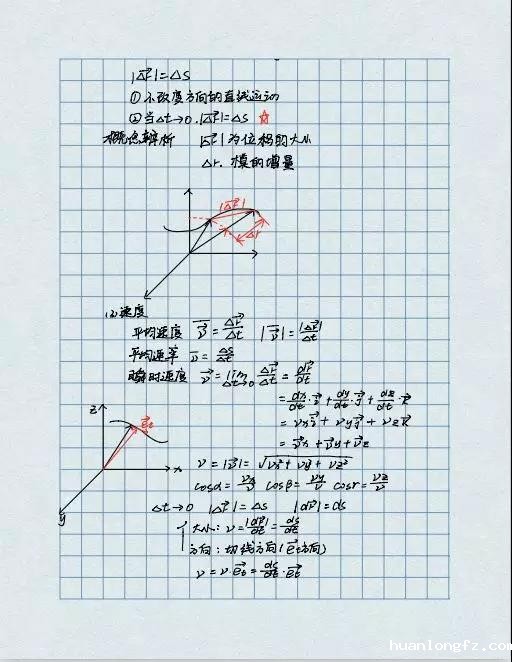 |Δr⃗|=Δs
①不改变方向的直线运动
②当Δt→0.|Δr⃗|=Δs ☆
概念辨析 |Δr⃗|为位移的大小
Δr.模的增量
|Δr⃗|
Δr
(2)速度
平均速度 v⃗̅=Δr⃗/Δt |v⃗̅|=|Δr⃗|/Δt
平均速率 v̅=Δs/Δt
瞬时速度 v⃗=lim Δt→0 Δr⃗/Δt=dr⃗/dt
=dx/dt·i⃗+dy/dt·j⃗+dz/dt·k⃗
=vxi⃗+vyj⃗+vzk⃗
=v⃗x+v⃗y+v⃗z
z
e⃗t
x
y
v=|v⃗|=√(vx²+vy²+vz²)
cosα=vx/v cosβ=vy/v cosr=vz/v
Δt→0 |Δr⃗|=Δs |dr⃗|=ds
大小:v=|dr⃗|/dt=ds/dt
方向:切线方向(e⃗t方向)
v=v·e⃗t=ds/dt·e⃗t
huanlongfz.com